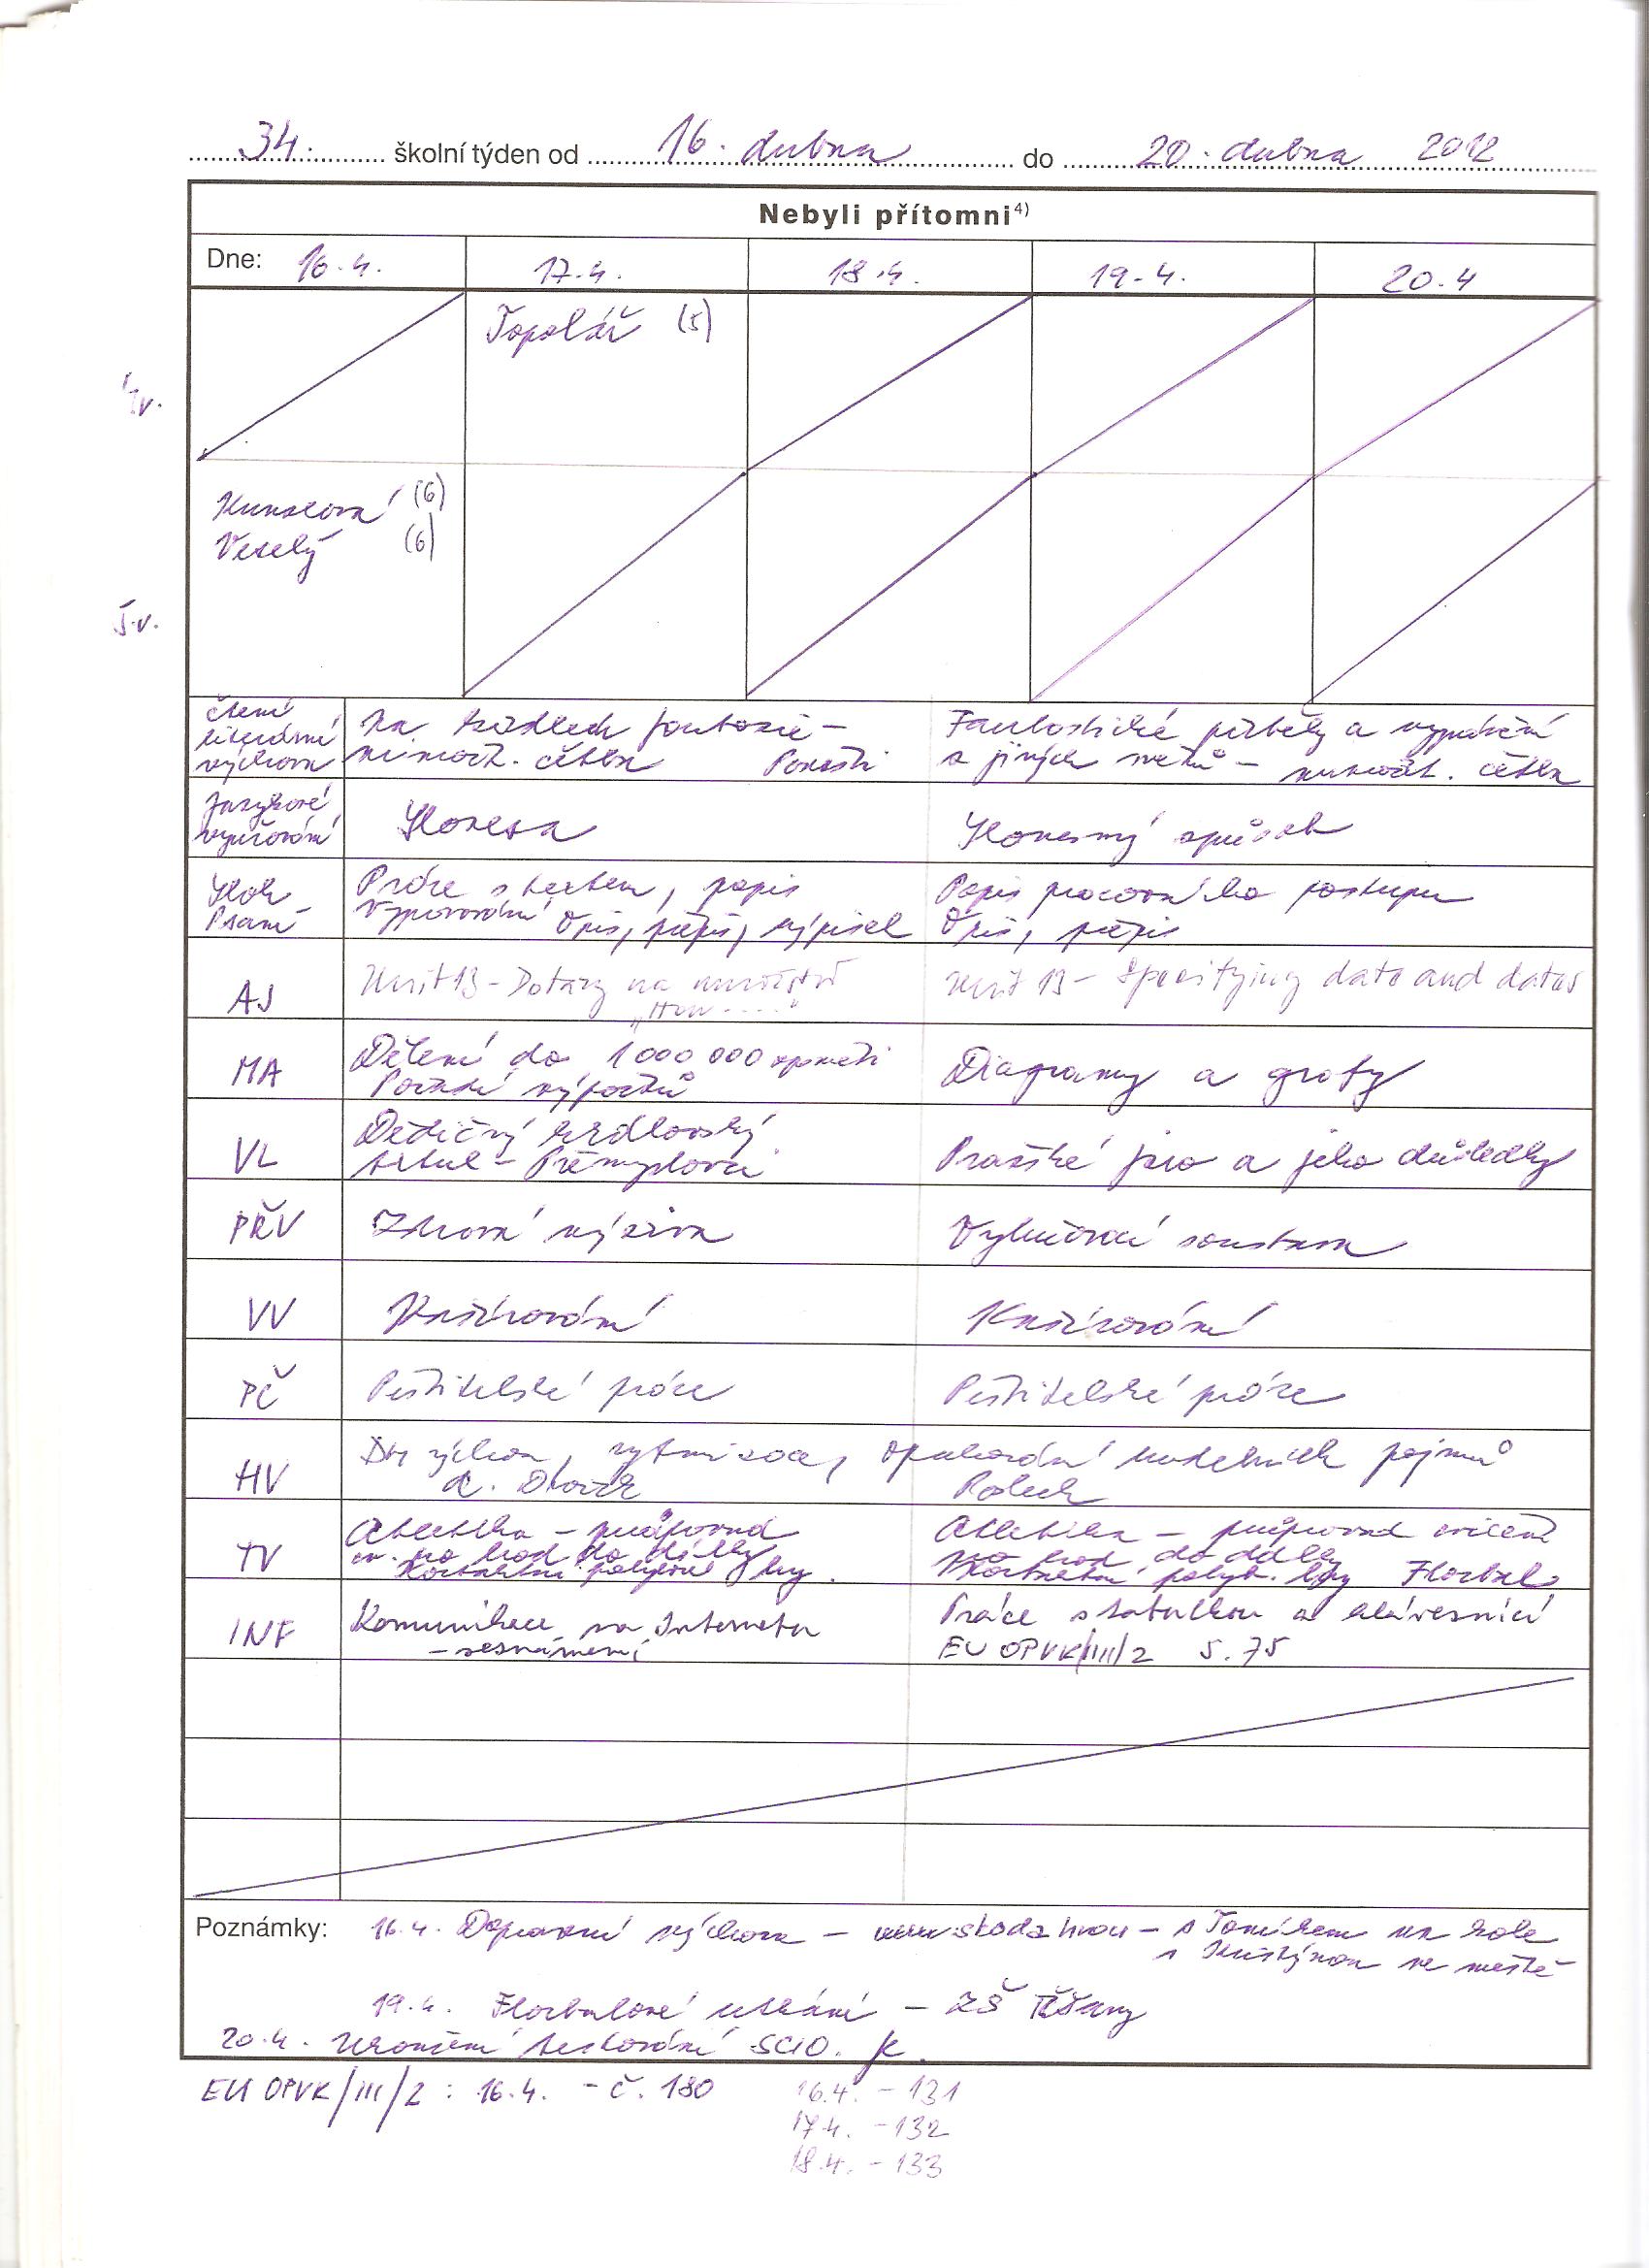 34. školní týden od 16. dubna do 20. dubna 2012
Nebyli přítomni4)
Dne: 16.4. 17.4. 18.4. 19.4. 20.4
Topolář (5)
(6)
Veselý (6)
5.v.
čtení
literární
výchova
Na křídlech fantazie –
mimoč. četba Pověsti
Fantastické příběhy a vyprávění
z jiných světů – mimočít. četba
Jazykové
vyučování
Slovesa
Slovesný způsob
Sloh
Psaní
Práce s textem, popis
Vypravování Opis, přepis, výpisek
Popis pracovního postupu
Opis, přepis
AJ
Unit 13 – Dotazy na množství
"How ...."
Unit 13 – Specifying date and dates
MA
Dělení do 1 000 000 zpaměti
Pořadí výpočtů
Diagramy a grafy
VL
Dědičný královský
titul – Přemyslovci
Pražské jaro a jeho důsledky
PŘV
Zdravá výživa
Vylučovací soustava
VV
Kašírování
Kašírování
PČ
Pěstitelské práce
Pěstitelské práce
HV
rytmizace, opakování hudebních pojmů
A. Dvořák
TV
Atletika – průpravná
cv. pro hod do dálky
Kontaktní pohybové hry.
Atletika – průpravná cvičení
pro hod do dálky
Kontaktní pohyb. hry Florbal
INF
Komunikace na Internetu
– seznámení
Práce s tabulkou a klávesnicí
EU OPVK/III/2 5.75
Poznámky: 16.4. Dopravní výchova – www skoda hrou – s Tomíkem na kole
s Kristýnou ve městě
19.4. Florbalové utkání – ZŠ
20.4. Ukončení testování SCIO.
EU OPVK/III/2 : 16.4. – č. 180
16.4. – 131
17.4. – 132
18.4. – 133